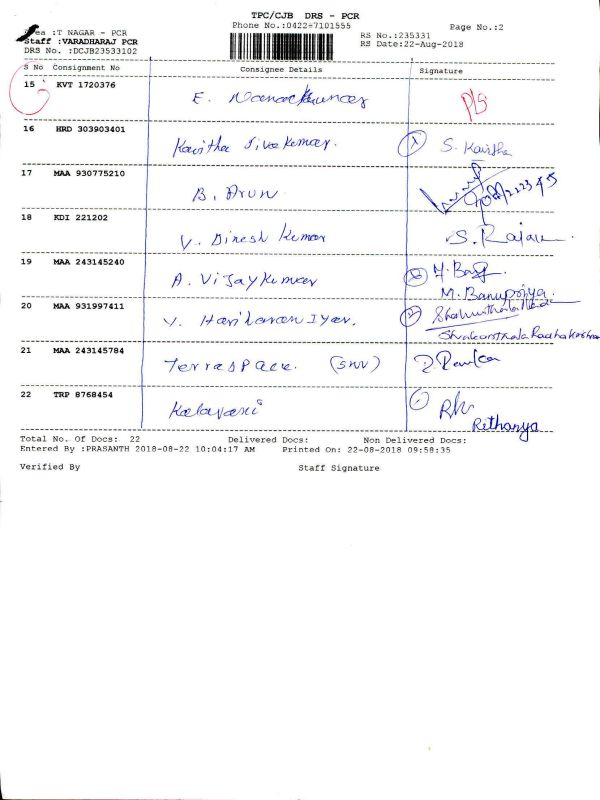 TPC/CJB DRS - PCR
Phone No.:0422-7101555
Page No.:2
:T NAGAR - PCR
RS No.:235331
Staff :VARADHARAJ PCR
RS Date:22-Aug-2018
DRS No. :DCJB23533102
S No Consignment No Consignee Details Signature
15 KVT 1720376
E.
16 HRD 303903401
Kavitha Siva Kumar. S. Kavitha
17 MAA 930775210
B. Arun
18 KDI 221202
V. Dinesh Kumar S. Rajan
19 MAA 243145240
A. Vijaykumar
M. Banupriya
20 MAA 931997411
V. Hariharan Iyar.
21 MAA 243145784
Terraspace. (SNV)
22 TRP 8768454
Kalavani
Rethanya
Total No. Of Docs: 22 Delivered Docs: Non Delivered Docs:
Entered By :PRASANTH 2018-08-22 10:04:17 AM Printed On: 22-08-2018 09:58:35
Verified By Staff Signature